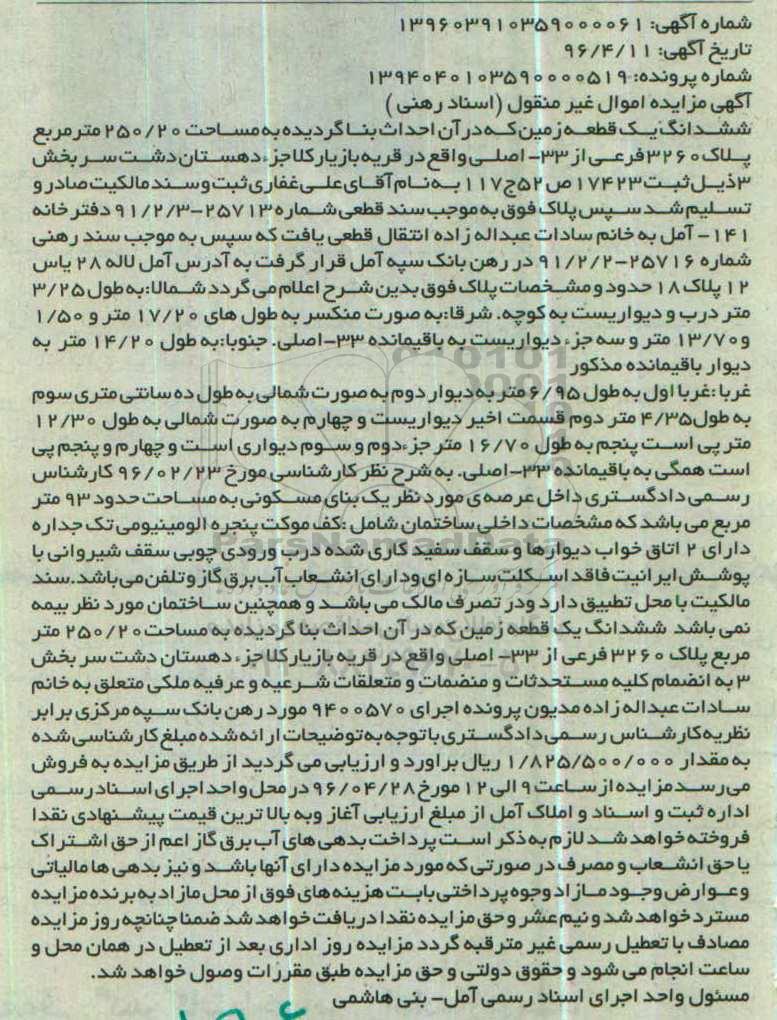 شماره آگهی: ۱۳۹۶۰۳۹۱۰۳۵۹۰۰۰۰۶۱
تاریخ آگهی: ۹۶/۴/۱۱
شماره پرونده: ۱۳۹۴۰۴۰۱۰۳۵۹۰۰۰۰۵۱۹
آگهی مزایده اموال غیر منقول (اسناد رهنی)
ششدانگ یک قطعه زمین که در آن احداث بنا گردیده به مساحت ۲۵۰/۲۰ متر مربع
پلاک ۳۲۶۰ فرعی از ۳۳- اصلی واقع در قریه بازیارکلا جزء دهستان دشت سر بخش
۳ ذیل ثبت ۱۷۴۲۳ ص ۵۲ ج ۱۱۷ به نام آقای علی غفاری ثبت و سند مالکیت صادر و
تسلیم شد سپس پلاک فوق به موجب سند قطعی شماره ۲۵۷۱۳-۹۱/۲/۳ دفتر خانه
۱۴۱- آمل به خانم سادات عبداله زاده انتقال قطعی یافت که سپس به موجب سند رهنی
شماره ۲۵۷۱۶-۹۱/۲/۲ در رهن بانک سپه آمل قرار گرفت به آدرس آمل لاله ۲۸ یاس
۱۲ پلاک ۱۸ حدود و مشخصات پلاک فوق بدین شرح اعلام می گردد شمالا: به طول ۳/۲۵
متر درب و دیواریست به کوچه. شرقا: به صورت منکسر به طول های ۱۷/۲۰ متر و ۱/۵۰
و ۱۳/۷۰ متر و سه جزء دیواریست به باقیمانده ۳۳-اصلی. جنوبا: به طول ۱۴/۲۰ متر به
دیوار باقیمانده مذکور
غربا: غربا اول به طول ۶/۹۵ متر به دیوار دوم به صورت شمالی به طول ده سانتی متری سوم
به طول ۴/۳۵ متر دوم قسمت اخیر دیواریست و چهارم به صورت شمالی به طول ۱۲/۳۰
متر پی است پنجم به طول ۱۶/۷۰ متر جزء دوم و سوم دیواری است و چهارم و پنجم پی
است همگی به باقیمانده ۳۳-اصلی. به شرح نظر کارشناسی مورخ ۹۶/۰۲/۲۳ کارشناس
رسمی دادگستری داخل عرصه ی مورد نظر یک بنای مسکونی به مساحت حدود ۹۳ متر
مربع می باشد که مشخصات داخلی ساختمان شامل: کف موکت پنجره الومینیومی تک جداره
دارای ۲ اتاق خواب دیوارها و سقف سفید کاری شده درب ورودی چوبی سقف شیروانی با
پوشش ایرانیت فاقد اسکلت سازه ای و دارای انشعاب آب برق گاز و تلفن می باشد. سند
مالکیت با محل تطبیق دارد و در تصرف مالک می باشد و همچنین ساختمان مورد نظر بیمه
نمی باشد ششدانگ یک قطعه زمین که در آن احداث بنا گردیده به مساحت ۲۵۰/۲۰ متر
مربع پلاک ۳۲۶۰ فرعی از ۳۳- اصلی واقع در قریه بازیارکلا جزء دهستان دشت سر بخش
۳ به انضمام کلیه مستحدثات و منضمات و متعلقات شرعیه و عرفیه ملکی متعلق به خانم
سادات عبداله زاده مدیون پرونده اجرای ۹۴۰۰۵۷۰ مورد رهن بانک سپه مرکزی برابر
نظریه کارشناس رسمی دادگستری با توجه به توضیحات ارائه شده مبلغ کارشناسی شده
به مقدار ۱/۸۲۵/۵۰۰/۰۰۰ ریال براورد و ارزیابی می گردید از طریق مزایده به فروش
می رسد مزایده از ساعت ۹ الی ۱۲ مورخ ۹۶/۰۴/۲۸ در محل واحد اجرای اسناد رسمی
اداره ثبت و اسناد و املاک آمل از مبلغ ارزیابی آغاز و به بالا ترین قیمت پیشنهادی نقدا
فروخته خواهد شد لازم به ذکر است پرداخت بدهی های آب برق گاز اعم از حق اشتراک
یا حق انشعاب و مصرف در صورتی که مورد مزایده دارای آنها باشد و نیز بدهی ها مالیاتی
و عوارض و جود مازاد وجوه پرداختی بابت هزینه های فوق از محل مازاد به برنده مزایده
مسترد خواهد شد و نیم عشر و حق مزایده نقدا دریافت خواهد شد ضمنا چنانچه روز مزایده
مصادف با تعطیل رسمی غیر مترقبه گردد مزایده روز اداری بعد از تعطیل در همان محل و
ساعت انجام می شود و حقوق دولتی و حق مزایده طبق مقررات وصول خواهد شد.
مسئول واحد اجرای اسناد رسمی آمل- بنی هاشمی
ParsNamadData